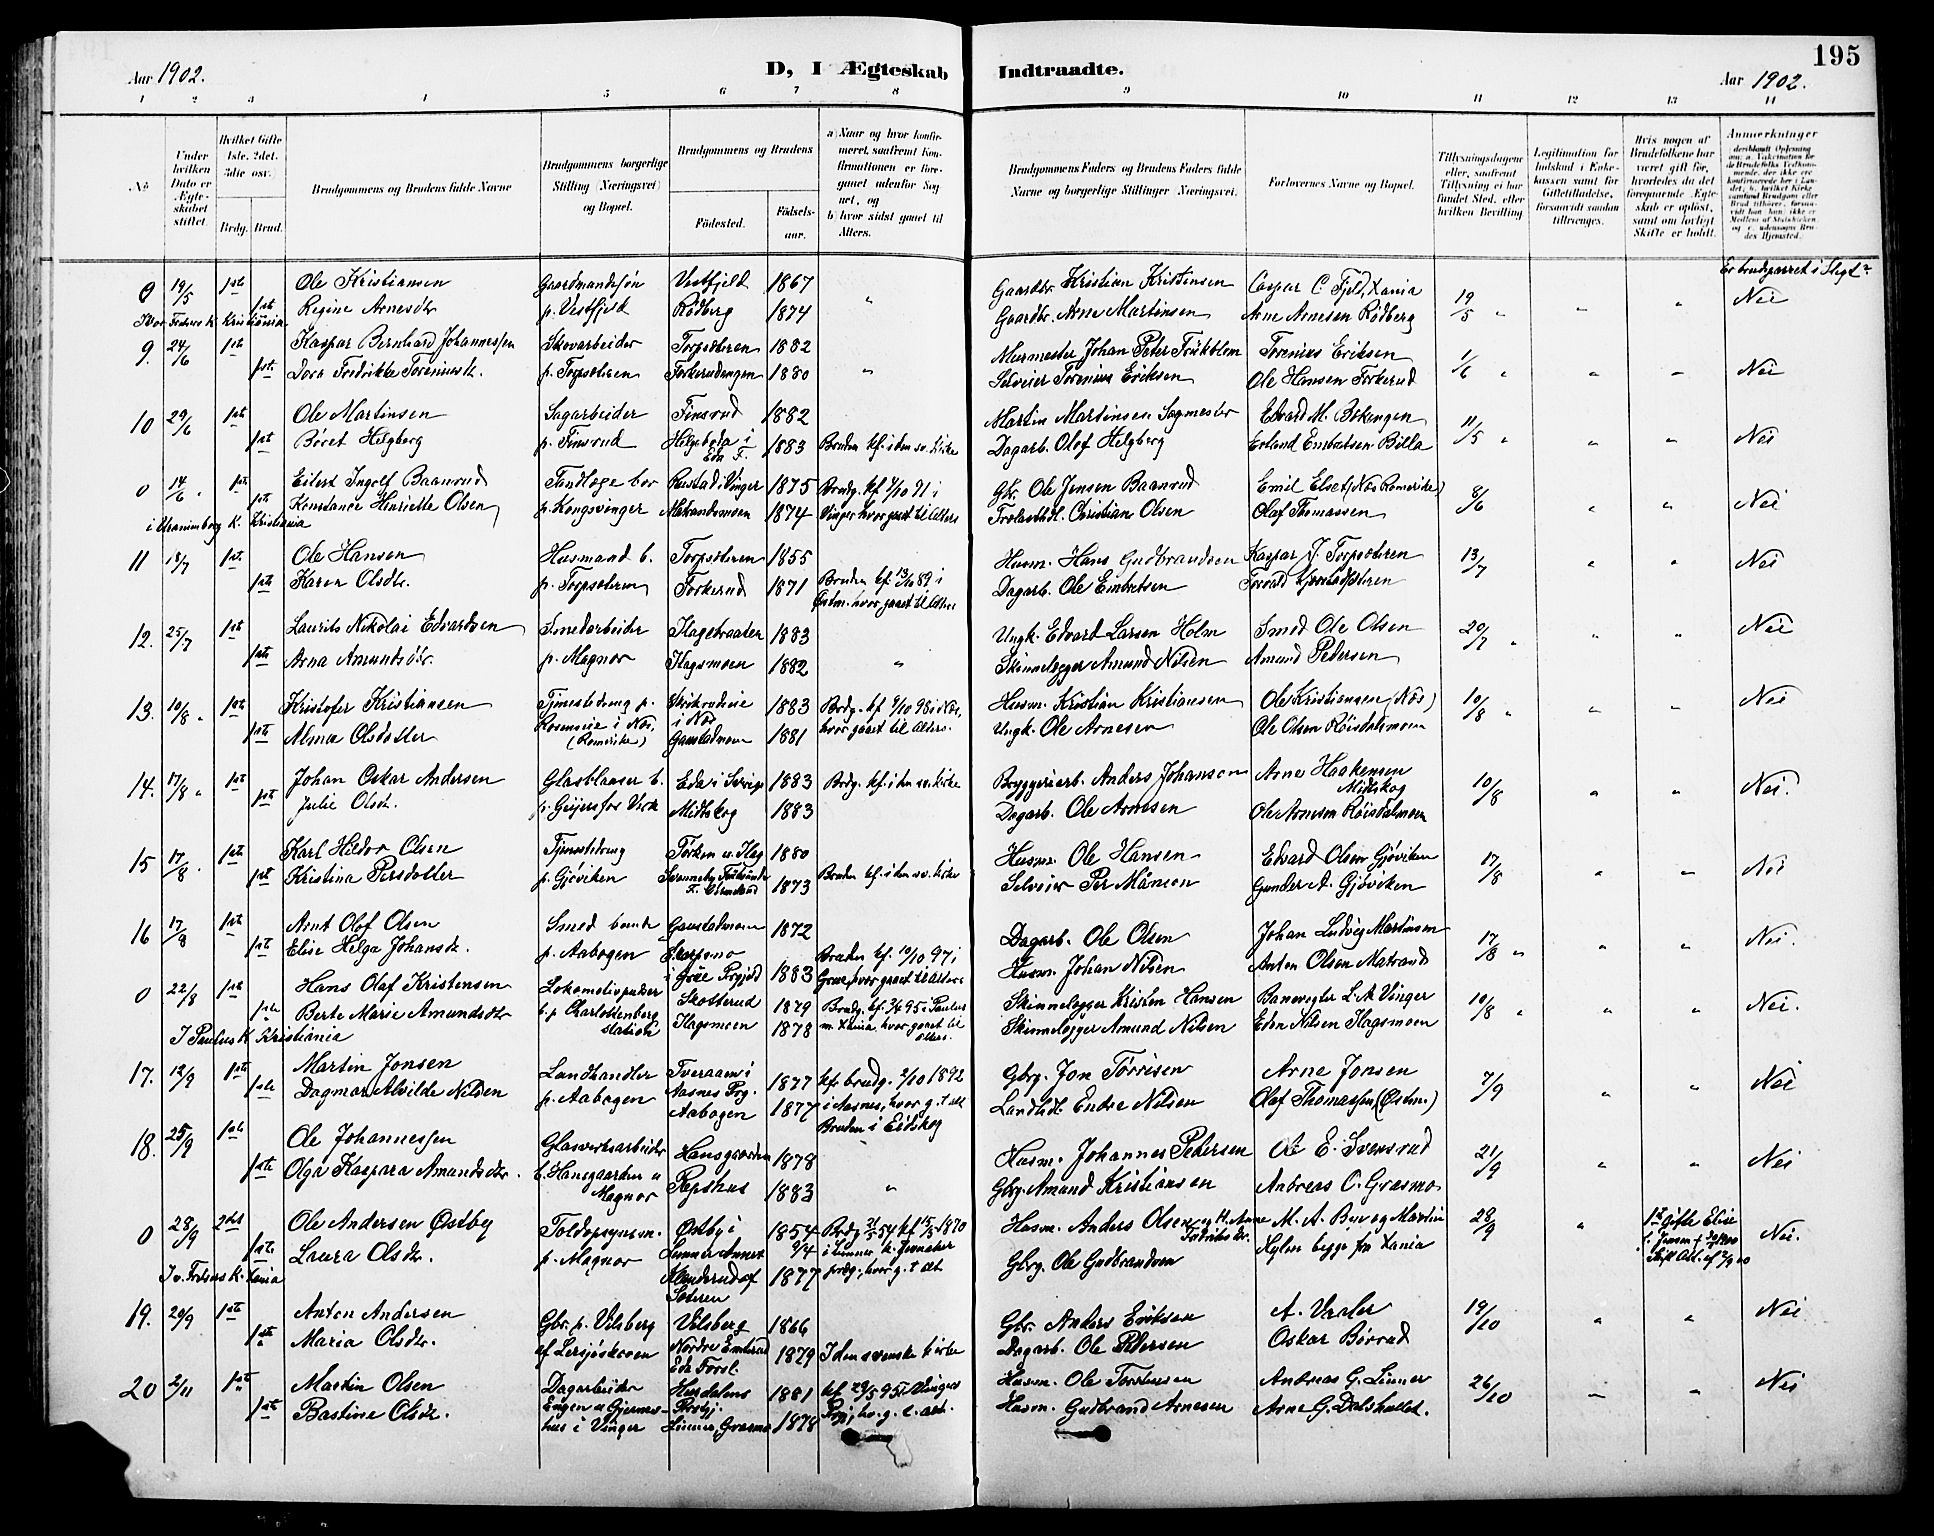 195
Aar 1902.
D, I Ægteskab Indtraadte.
Aar 1902.
1 2 3 4 5 6 7 8 9 10 11 12 13 14
No
Under hvilken Dato er Ægteskabet stiftet.
Hvilket Gifte 1ste, 2det, 3die osv.
Brdg. Brud.
Brudgommens og Brudens fulde Navne
Brudgommens borgerlige Stilling (Næringsvei) og Bopæl.
Brudgommens og Brudens
Fødested. Fødselsaar.
a) Naar og hvor konfirmeret, saafremt Konfirmationen er foregaaet udenfor Sognet, og b) hvor sidst gaaet til Alters.
Brudgommens Faders og Brudens Faders fulde Navne og borgerlige Stillinger (Næringsvei).
Forlovernes Navne og Bopæl.
Tillysningsdagene eller, saafremt Tillysning ei har fundet Sted, efter hvilken Bevilling
Legitimation for Indskud i Enkekassen samt for Giftetilladelse, forsaavidt saadan tiltrænges.
Hvis nogen af Brudefolkene har været gift før, hvorledes da det foregaaende Ægteskab er opløst, samt om lovligt Skifte er holdt.
Anmerkninger
Er brudeparret i Slegt?
0 19/5 1ste Ole Kristiansen Gaardmandssøn Vestfjeld 1867 Gaardbr. Kristian Kristensen Caspar C. Fjeld, Xania 19/5 Nei
1ste Regine Arnesdtr p. Vestfjeld Rødberg 1874 Gaardbr. Arne Martinsen Arne Arnesen Rødberg
I Vor Frelsers K. Kristiania
9. 24/6 1ste Kaspar Bernhard Johannessen Skovarbeider Torpsæteren 1882 Murmester Johan Peter Trükblom Torenius Eriksen 1/6 Nei
1ste Dora Fredrikke Toreniusdr. p. Torpsæteren Torkerudengen 1880 Selveier Torenius Eriksen Ole Hansen Torkerud
10 29/6 1ste Ole Martinsen Sagarbeider Finsrud 1882 Martin Martinsen Sagmester Edvard M. Bekengen 11/5 Nei
1ste Børet Helgberg p. Finsrud Helgeboda i Eda F. 1883 Bruden kf. i den sv. kirke Dagarb. Olof Helgberg Erland Embretsen Billa
0 14/6 1ste Eilert Ingolf Baanrud Tandlæge bor Rustad i Vinger 1875 Brudg. kf. 4/10 91 i Gbr. Ole Jensen Baanrud Emil Elset (Næs Romerike) 8/6 Nei
1ste Konstance Henriette Olsen p. Kongsvinger Matrandsmoen 1874 Vinger hvor gaaet til Alters Trælasthdl. Christian Olsen Olaf Thomassen
i Uranienborg K. Kristiania
11 18/7 1ste Ole Hansen Husmand b. Torpsæteren 1855 Husm. Hans Gudbrandsen Kaspar J. Torpsæteren 13/7 Nei
1ste Karen Olsdtr. p. Torpsæteren Torkerud 1871 Bruden kf. 13/10 89 i Østm. hvor gaaet til Alters Dagarb. Ole Embretsen
12. 25/7 1ste Laurits Nikolai Edvardsen Smedarbeider Hagebraaten 1883 Ungk. Edvard Larsen Holm Smed Ole Olsen 20/7 Nei
1ste Arna Amundsdtr. p. Magnor Hagsmoen 1882 Skinnelægger Amund Nilsen Amund Pedersen
13. 10/8 1ste Kristofer Kristiansen Tjenestedreng p. i Næs 1883 Brdg. kf 4/10 98 i Næs, Husm. Kristian Kristiansen Ole Kristiansen (Næs) 10/8 Nei
1ste Alma Olsdotter Rosenvie i Næs, (Romerike) Gaustadmoen 1881 hvor gaaet til Alters. Ungk. Ole Arnesen Ole Olsen Røisdalsmoen
14. 17/8 1ste Johan Oskar Andersen Glasblaaser b. Eda i Sverige 1883 Brdg. kf. i den sv. kirke Bryggeriarb. Anders Johanson Arne Haakensen Midtskog 10/8 Nei.
1ste Julie Olsdr. p. Geijersfor Verk Midtskog 1883 Dagarb. Ole Arnesen Ole Arnesen Røisdalmoen
15 17/8 1ste Karl Hildor Olsen Tjenestedreng Torken u. Hag 1880 Husm. Ole Hansen Edvard Olsen Gjøviken 17/8 Nei
1ste Kristina Persdotter p. Gjøviken 1873 Bruden kf. i den sv. kirke Selveier Per Månson Gunder A. Gjøviken
16 17/8 1ste Arnt Olof Olsen Smed bonde Gaustadmoen 1872 Dagarb. Ole Olsen Johan Ludvig Martinsen 17/8 Nei.
1ste Elise Helga Johansdr. p. Aabogen i Grue Prgjld 1883 Bruden kf. 10/10 97 i Grue, hvor gaaet til Alters Husm. Johan Nilsen Anton Olsen Matrand
0 22/8 1ste Hans Olaf Kristensen Lokomotivpudser Skotterud 1879 Brudg. kf. 3/4 95 i Paulus Skinnelægger Kristen Hansen Banevogter L. A. Vinger 10/8 Nei.
1ste Berte Marie Amundsdtr b. p. Charlottenberg station Hagsmoen 1878 m. Xania, hvor gaaet til Alters. Skinnelægger Amund Nilsen Eden Nilsen Hagsmoen
I Paulus K Kristiania
17. 12/9 1ste Martin Jonsen Landhandler Tveraaen i Aasnes Prg. 1877 kf. brudg. 2/10 1892 Gbrg. Jon Tørrisen Arne Jonsen 7/9 Nei
1ste Dagmar Alvilde Nilsen p. Aabogen Aabogen 1877 i Aasnes, hvor g. t. alt. Bruden i Eidskog Landhdl. Endre Nilsen Olaf Thomassen (Østm.)
18. 25/9 1ste Ole Johannessen Glasverksarbeider Hansgaarden 1878 Husm. Johannes Pedersen Ole E. Svensrud 21/9 Nei
1ste Olga Kaspara Amundsdtr. b. Hansgaarden u Magnor Pepshus 1883 Gbrg. Amund Kristiansen Andreas O. Grasmo
0 28/9 2det Ole Andersen Østby Toldopsynsm. Østby i 1854 Brdg. kf 15/5 1870 Husm. Anders Olsen og H. Anne Fredriksdr. M. A. Bye og Martin 28/9 1ste Gifte Elise Nei.
1ste Laura Olsdr. p. Magnor Lunner Annex 9/4 i Lunner k. Jevnaker Gbrg. Ole Gudbrandsen Hylen begge fra Xania
I v. Frelsers K. Xania Sæteren 1877 prgj., hvor g. t. alt.
19. 20/9 1ste Anton Andersen Gbr. p. Vilsberg Vilsberg 1866 Gbr. Anders Eriksen A. Vraler 19/10 Nei
1ste Maria Olsdtr. af Lersjøskoven Nordre Emterud Eda Forsl. 1879 I den svenske kirke Dagarb. Ole Pedersen Oskar Børrud
20 2/11 1ste Martin Olsen Dagarbeider 1881 kf 29/5 95 i Vinger Husm. Ole Torstensen Andreas G. Linner 26/10 Nei
1ste Bastine Olsdr. Engen u Gjermeshus i Vinger Linner, Grasmo 1878 Prgj., hv. g. t. alt. Husm. Gudbrand Arnesen Arne G. Dalshullet.